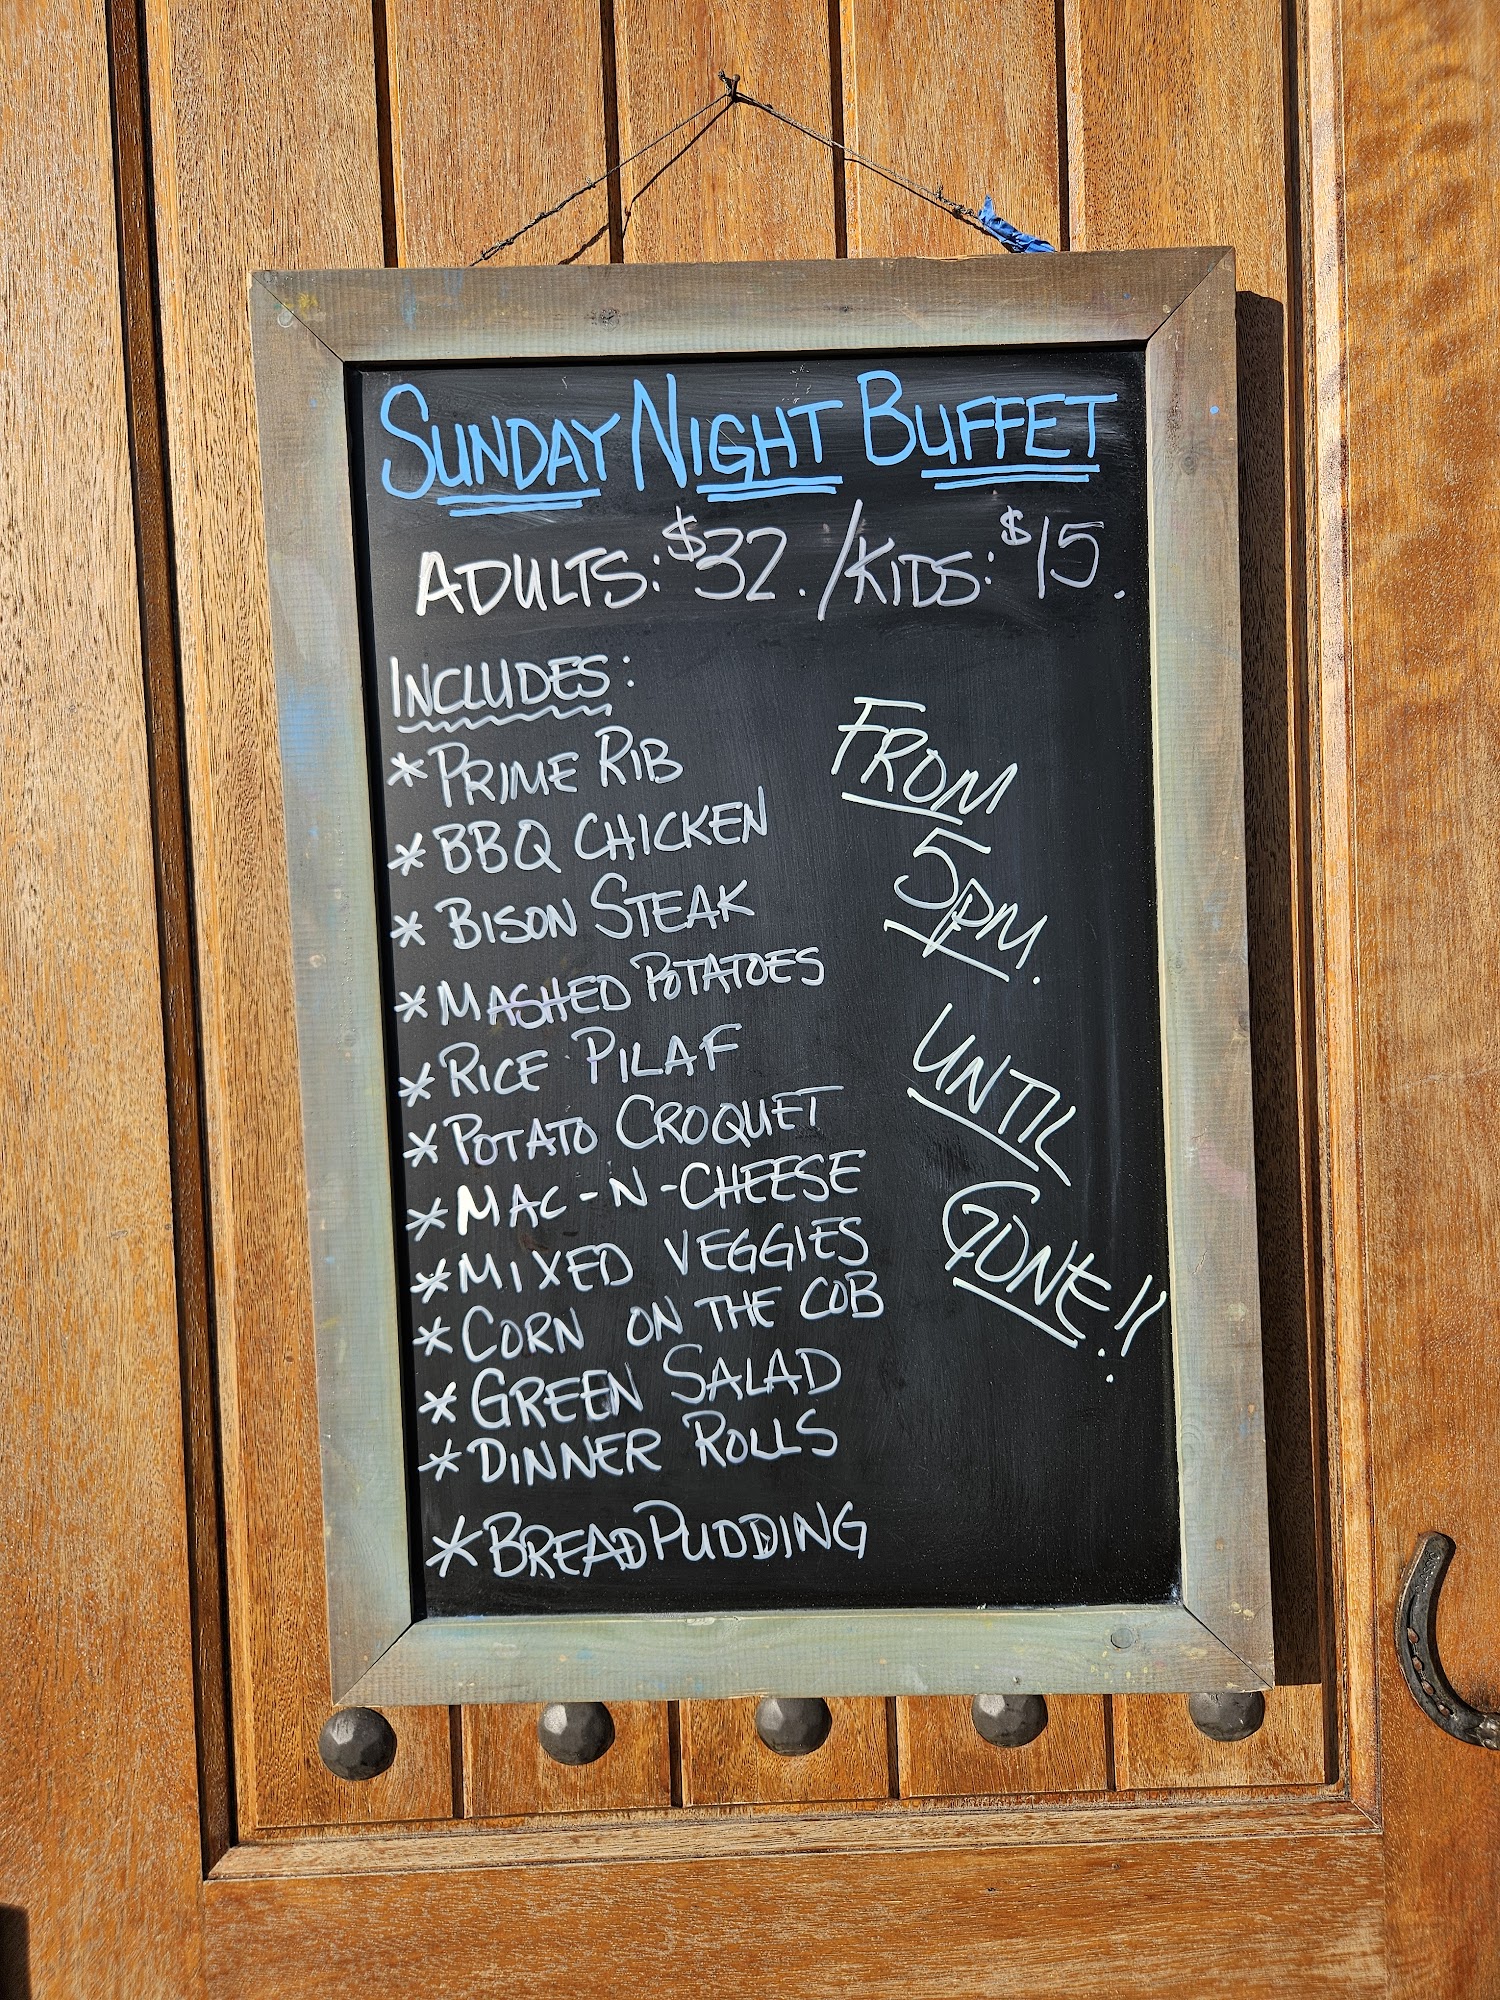 SUNDAY NIGHT BUFFET
ADULTS: $32. /KIDS: $15.
INCLUDES:
* PRIME RIB
* BBQ CHICKEN
* BISON STEAK
* MASHED POTATOES
* RICE PILAF
* POTATO CROQUET
* MAC-N-CHEESE
* MIXED VEGGIES
* CORN ON THE COB
* GREEN SALAD
* DINNER ROLLS
* BREAD PUDDING
FROM
5PM.
UNTIL
GONE!!